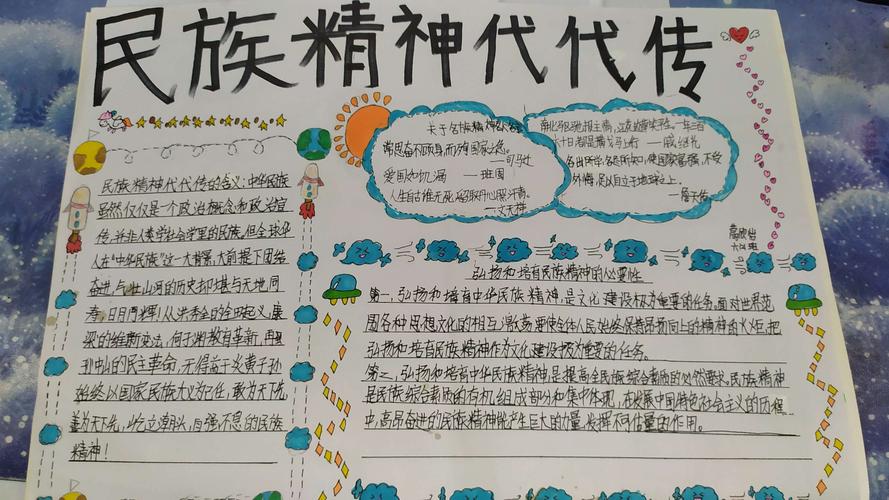 民族精神代代传
民族精神代代传的含义:中华民族
虽然仅仅是一个政治概念和政治宣
传,并非人类学社会学里的民族。但全球华
人在“中华民族”这一大背景、大前提下团结
奋进,与壮山河的历史却堪与天地同
寿、日月同辉!从洪秀全的金田起义,康
梁的维新变法,何子渊教育革新,再
孙中山的民主革命,无不得益于炎黄子孙
始终以国家民族大义为己任,敢为天下先,
善为天下先,屹立潮头,自强不息的民族
精神!
关于名族精神的名言
常思奋不顾身,而殉国家之急。
——司马迁
爱国如饥渴 ——班固
人生自古谁无死,留取丹心照汗青。
——文天祥
南北驱驰报主情,江花边月笑平生。一年三百
六十日,都是横戈马上行 ——戚继光
各出所学,各尽所知,使国家富强,不受
外侮,足以自立于地球之上。
——詹天佑
弘扬和培育民族精神的必要性
第一,弘扬和培育中华民族精神,是文化建设极为重要的任务。面对世界范
围各种思想文化的相互激荡,要使全体人民始终保持昂扬向上的精神的火炬,把
弘扬和培育民族精神作为文化建设极为重要的任务。
第二,弘扬和培育中华民族精神,是提高全民族综合素质的必然要求。民族精神
是民族综合素质的有机组成部分和集中体现,在发展中国特色社会主义的历程
中,高昂奋进的民族精神能产生巨大的力量,发挥不可估量的作用。